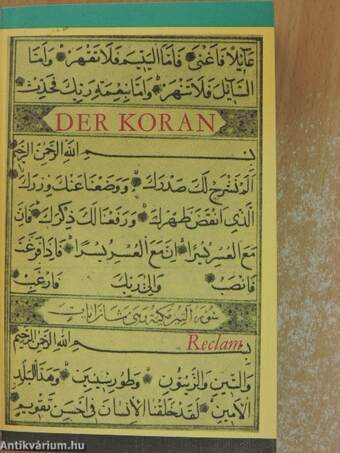 عَآئِلًا فَاَغْنٰى فَاَمَّا الْيَتِيْمَ فَلَا تَقْهَرْ وَاَمَّا
السَّآئِلَ فَلَا تَنْهَرْ وَاَمَّا بِنِعْمَةِ رَبِّكَ فَحَدِّثْ
DER KORAN
بِسْمِ اللّٰهِ الرَّحْمٰنِ الرَّحِيْمِ
اَلَمْ نَشْرَحْ لَكَ صَدْرَكَ وَوَضَعْنَا عَنْكَ وِزْرَكَ
الَّذِىْ اَنْقَضَ ظَهْرَكَ وَرَفَعْنَا لَكَ ذِكْرَكَ فَاِنَّ
مَعَ الْعُسْرِ يُسْرًا اِنَّ مَعَ الْعُسْرِ يُسْرًا فَاِذَا فَرَغْتَ
فَانْصَبْ وَاِلٰى رَبِّكَ فَارْغَبْ
سورة التين مكية وهى ثمان ايات
Reclam
بِسْمِ اللّٰهِ الرَّحْمٰنِ الرَّحِيْمِ
وَالتِّيْنِ وَالزَّيْتُوْنِ وَطُوْرِ سِيْنِيْنَ وَهٰذَا الْبَلَدِ
الْاَمِيْنِ لَقَدْ خَلَقْنَا الْاِنْسَانَ فِىْ اَحْسَنِ تَقْوِيْمٍ
Antikvárium.hu